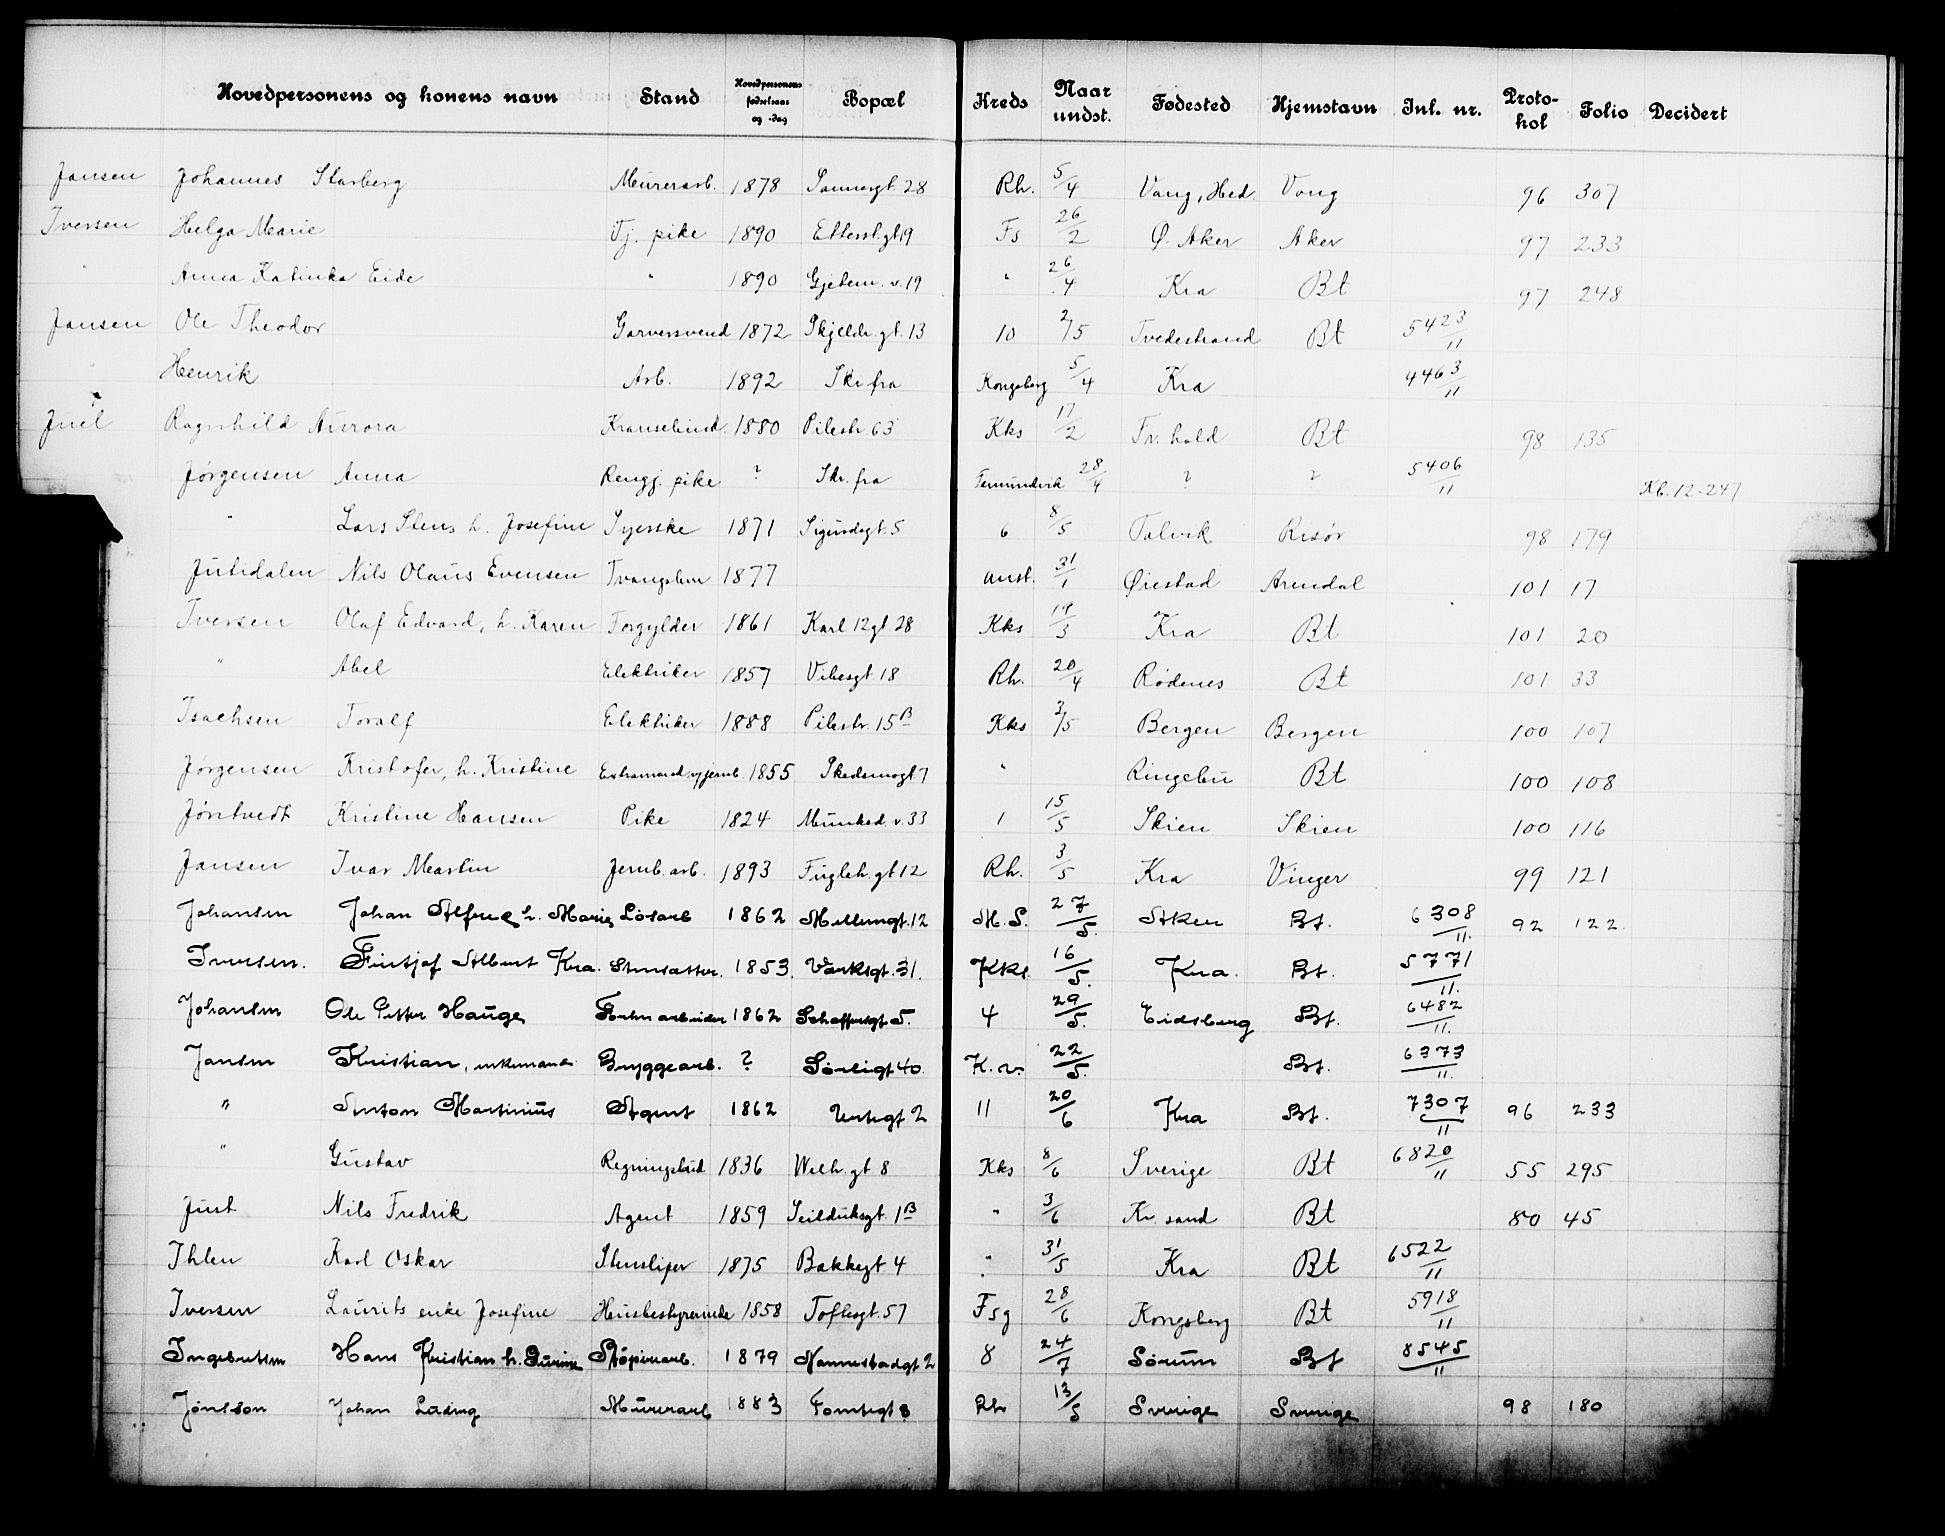 Hovedpersonens og konens navn Stand Hovedpersonens fødselsaar og -dag Bopæl Kreds Naar undst. Fødested Hjemstavn Inl. nr. Protokol Folio Decidert
Jansen Johannes Starberg Murerarb. 1878 Sannergt. 28 Rh. 5/4 Vang, Hed. Vang 96 307
Iversen Helga Marie Tj. pike 1890 Etterst.gt 19 Fs 26/2 Ø. Aker Aker 97 233
" Anna Katinka Eide " 1890 Gjetem. v. 19 " 26/4 Kra Bt 97 248
Jansen Ole Theodor Garversvend 1872 Skjeldr. gt. 13 10 2/5 Tvedestrand Bt 5423/11
Henrik Arb. 1892 Skr. fra Kongsberg 5/4 Kra 4463/11
Juel Ragnhild Aurora Kransebind. 1880 Pilestr. 63 Kks 17/2 Fr. hald Bt 98 135
Jørgensen Anna Rengj. pike ? Skr. fra Femundvik 28/4 ? ? 5406/11 Kb. 12-247
" Lars Stens h. Josefine Syerske 1871 Sigurdsgt. 5 6 8/5 Talvik Risør 98 179
Jutidalen Nils Olaus Evensen Tvangslem 1877 anst. 31/1 Øiestad Arendal 101 17
Iversen Olaf Edvard, h. Karen Forgylder 1861 Karl 12 gt. 28 Kks 19/3 Kra Bt 101 20
" Abel Elektriker 1857 Vibesgt. 18 Rh. 20/4 Rødenes Bt 101 33
Isachsen Toralf Elektriker 1888 Pilestr. 15 B Kks 3/5 Bergen Bergen 100 107
Jørgensen Kristofer, h. Kristine Extramand v/jernb. 1855 Skedsmogt 7 " Ringebu Bt 100 108
Jørntvedt Kristine Hansen Pike 1824 Munked. v. 33 1 15/5 Skien Skien 100 116
Jansen Ivar Martin Jernb. arb. 1893 Fugleh. gt 12 Rh. 3/5 Kra Vinger 99 121
Johansen Johan Alfred h. Marie Løsarb 1862 Mellemgt. 12 M. S. 27/5. Aker Bt. 6308/11. 92 122.
Iversen. Fintjof Albert Kra. Stensætter. 1853. Verksgt. 31. Kks. 16/5. Kra. Bt. 5771/11.
Johansen Ole Petter Hauge Fortearbeider 1862 Schaffersgt 5. 4 29/5. Eidsberg Bt. 6482/11.
Jansen Kristian, enkemand Bryggearb. ? Sørligt 40. K. v. 22/5. Bt. 6373/11.
" Anton Martinius Agent 1862 Urtegt 2 11 20/6 Kra Bt. 7307/11 96 233
" Gustav Regningsbud 1836 Welh. gt. 8 Kks 8/6 Sverige Bt 6820/11 55 295
Just Nils Fredrik Agent 1859 Seilduksgt. 1 B " 3/6 Kr. sand Bt 80 45
Ihlen Karl Oskar Stensliper 1875 Bakkegt 4 " 31/5 Kra Bt 6522/11
Iversen Laurits enke Josefine Husbestyrerinde 1858 Toftesgt. 57 Fsg 28/6 Kongsberg Bt 5918/11
Ingebretsen Hans Kristian h. Gurine Støperiarb. 1879 Nannestadgt 2 8 24/7 Sørum Bt 8545/11
Jønsson Johan Ludvig Murerarb 1883 Tomtegt 8 Rh 13/5 Sverige Sverige 98 180